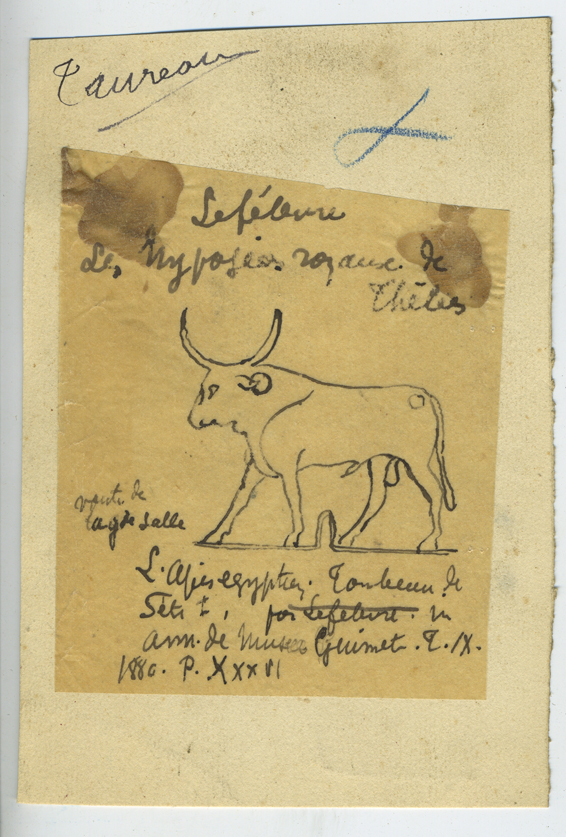 Taureau
Lefébure
Les hypogées royaux de
Thèbes
vente de
la gde salle
L'Apis egyptien. Tombeau de
Séti I, par Lefébure. in
ann. de Musée Guimet. T. IX.
1880. P. XXXVI